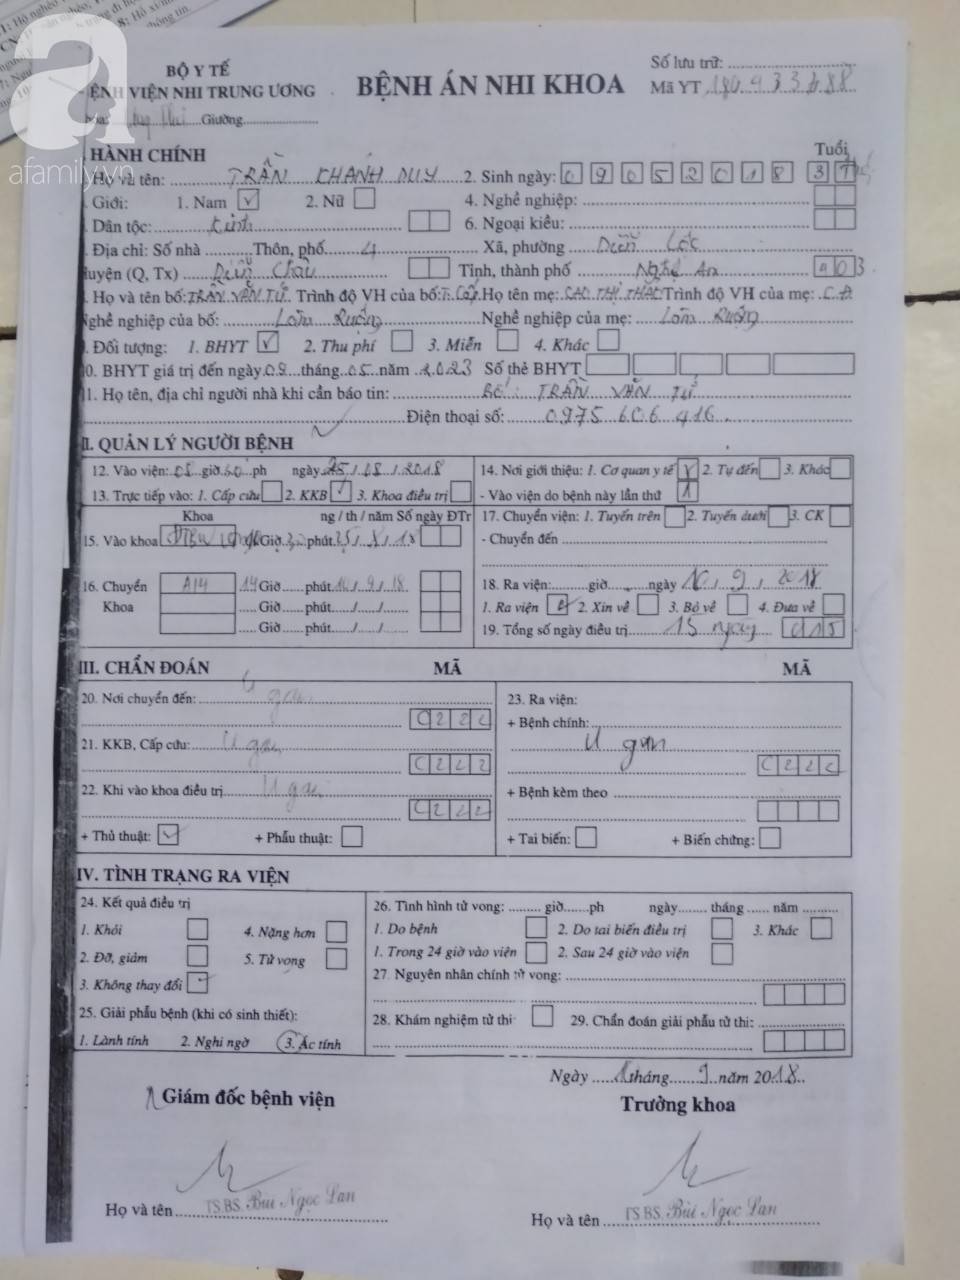 afamily.vn
BỘ Y TẾ
ỆNH VIỆN NHI TRUNG ƯƠNG
BỆNH ÁN NHI KHOA
Số lưu trữ:
Mã YT
Giường
HÀNH CHÍNH
Tuổi
Họ và tên: TRẦN KHÁNH DUY 2. Sinh ngày: 0 9 0 5 2 0 1 8 3 T
Giới: 1. Nam ✓ 2. Nữ 4. Nghề nghiệp:
Dân tộc: Kinh 6. Ngoại kiều:
Địa chỉ: Số nhà Thôn, phố 4 Xã, phường Diễn Lộc
Huyện (Q, Tx) Diễn Châu Tỉnh, thành phố Nghệ An
. Họ và tên bố: TRẦN VĂN TỨ. Trình độ VH của bố: Họ tên mẹ: CAO THỊ Trình độ VH của mẹ:
Nghề nghiệp của bố: Làm Ruộng Nghề nghiệp của mẹ: Làm Ruộng
. Đối tượng: 1. BHYT ✓ 2. Thu phí 3. Miễn 4. Khác
0. BHYT giá trị đến ngày tháng 05 năm 2023 Số thẻ BHYT
1. Họ tên, địa chỉ người nhà khi cần báo tin: TRẦN VĂN TỨ
Điện thoại số: 0975 606 416
II. QUẢN LÝ NGƯỜI BỆNH
12. Vào viện: giờ ph ngày 25/08/2018
13. Trực tiếp vào: 1. Cấp cứu 2. KKB ✓ 3. Khoa điều trị
14. Nơi giới thiệu: 1. Cơ quan y tế 2. Tự đến 3. Khác
- Vào viện do bệnh này lần thứ 1
Khoa ng / th / năm Số ngày ĐTr
15. Vào khoa Giờ phút
16. Chuyển Khoa A14 14 Giờ phút
Giờ phút / /
Giờ phút / /
17. Chuyển viện: 1. Tuyến trên 2. Tuyến dưới 3. CK
- Chuyển đến
18. Ra viện: giờ ngày 10, 9, 2018
1. Ra viện 2. Xin về 3. Bỏ về 4. Đưa về
19. Tổng số ngày điều trị 15 ngày 0 1 5
III. CHẨN ĐOÁN MÃ MÃ
20. Nơi chuyển đến: U gan
C 2 2 2
21. KKB, Cấp cứu: U gan
C 2 2 2
22. Khi vào khoa điều trị U gan
C 2 2 2
+ Thủ thuật: ✓ + Phẫu thuật:
23. Ra viện:
+ Bệnh chính:
U gan
C 2 2 2
+ Bệnh kèm theo
+ Tai biến: + Biến chứng:
IV. TÌNH TRẠNG RA VIỆN
24. Kết quả điều trị
1. Khỏi 4. Nặng hơn
2. Đỡ, giảm 5. Tử vong
3. Không thay đổi ✓
25. Giải phẫu bệnh (khi có sinh thiết):
1. Lành tính 2. Nghi ngờ 3. Ác tính
26. Tình hình tử vong: giờ ph ngày tháng năm
1. Do bệnh 2. Do tai biến điều trị 3. Khác
1. Trong 24 giờ vào viện 2. Sau 24 giờ vào viện
27. Nguyên nhân chính tử vong:
28. Khám nghiệm tử thi 29. Chẩn đoán giải phẫu tử thi:
Ngày tháng 9 năm 2018
Giám đốc bệnh viện
Trưởng khoa
Họ và tên TS.BS. Bùi Ngọc Lan
Họ và tên TS.BS. Bùi Ngọc Lan